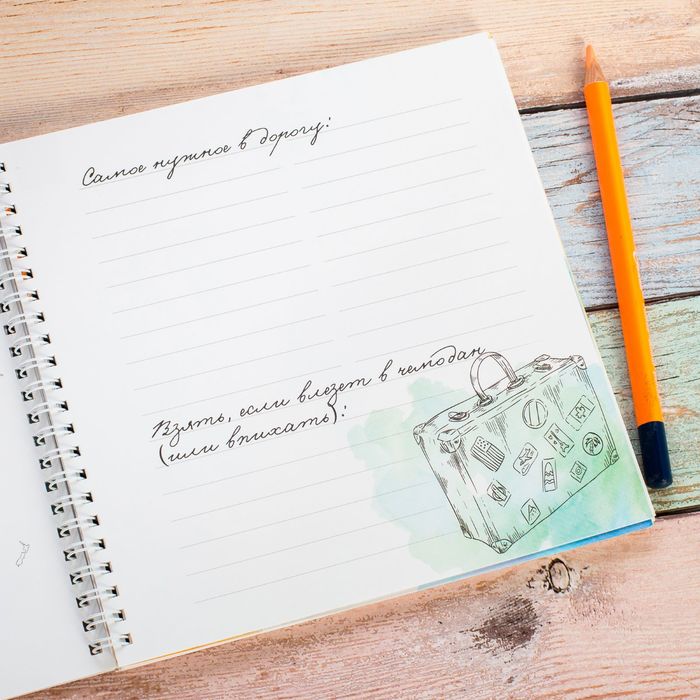 Самое нужное в дорогу:
Взять, если влезет в чемодан
(или впихать):